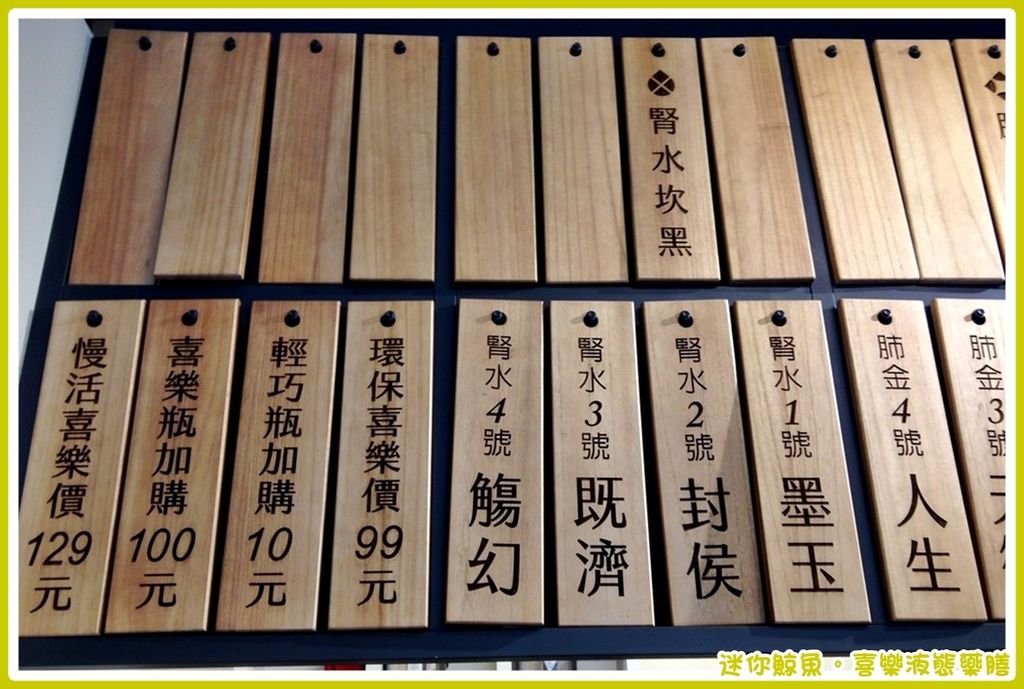 腎水坎黑
慢活喜樂價129元
喜樂瓶加購100元
輕巧瓶加購10元
環保喜樂價99元
腎水4號
觴幻
腎水3號
既濟
腎水2號
封侯
腎水1號
墨玉
肺金4號
人生
肺金3號
迷你鯨魚。喜樂液態藥膳